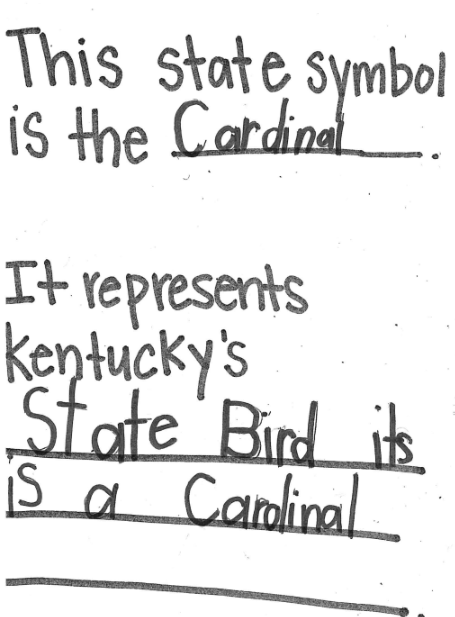 This state symbol
is the Cardinal.
It represents
kentucky's
State Bird its
is a Cardinal
.